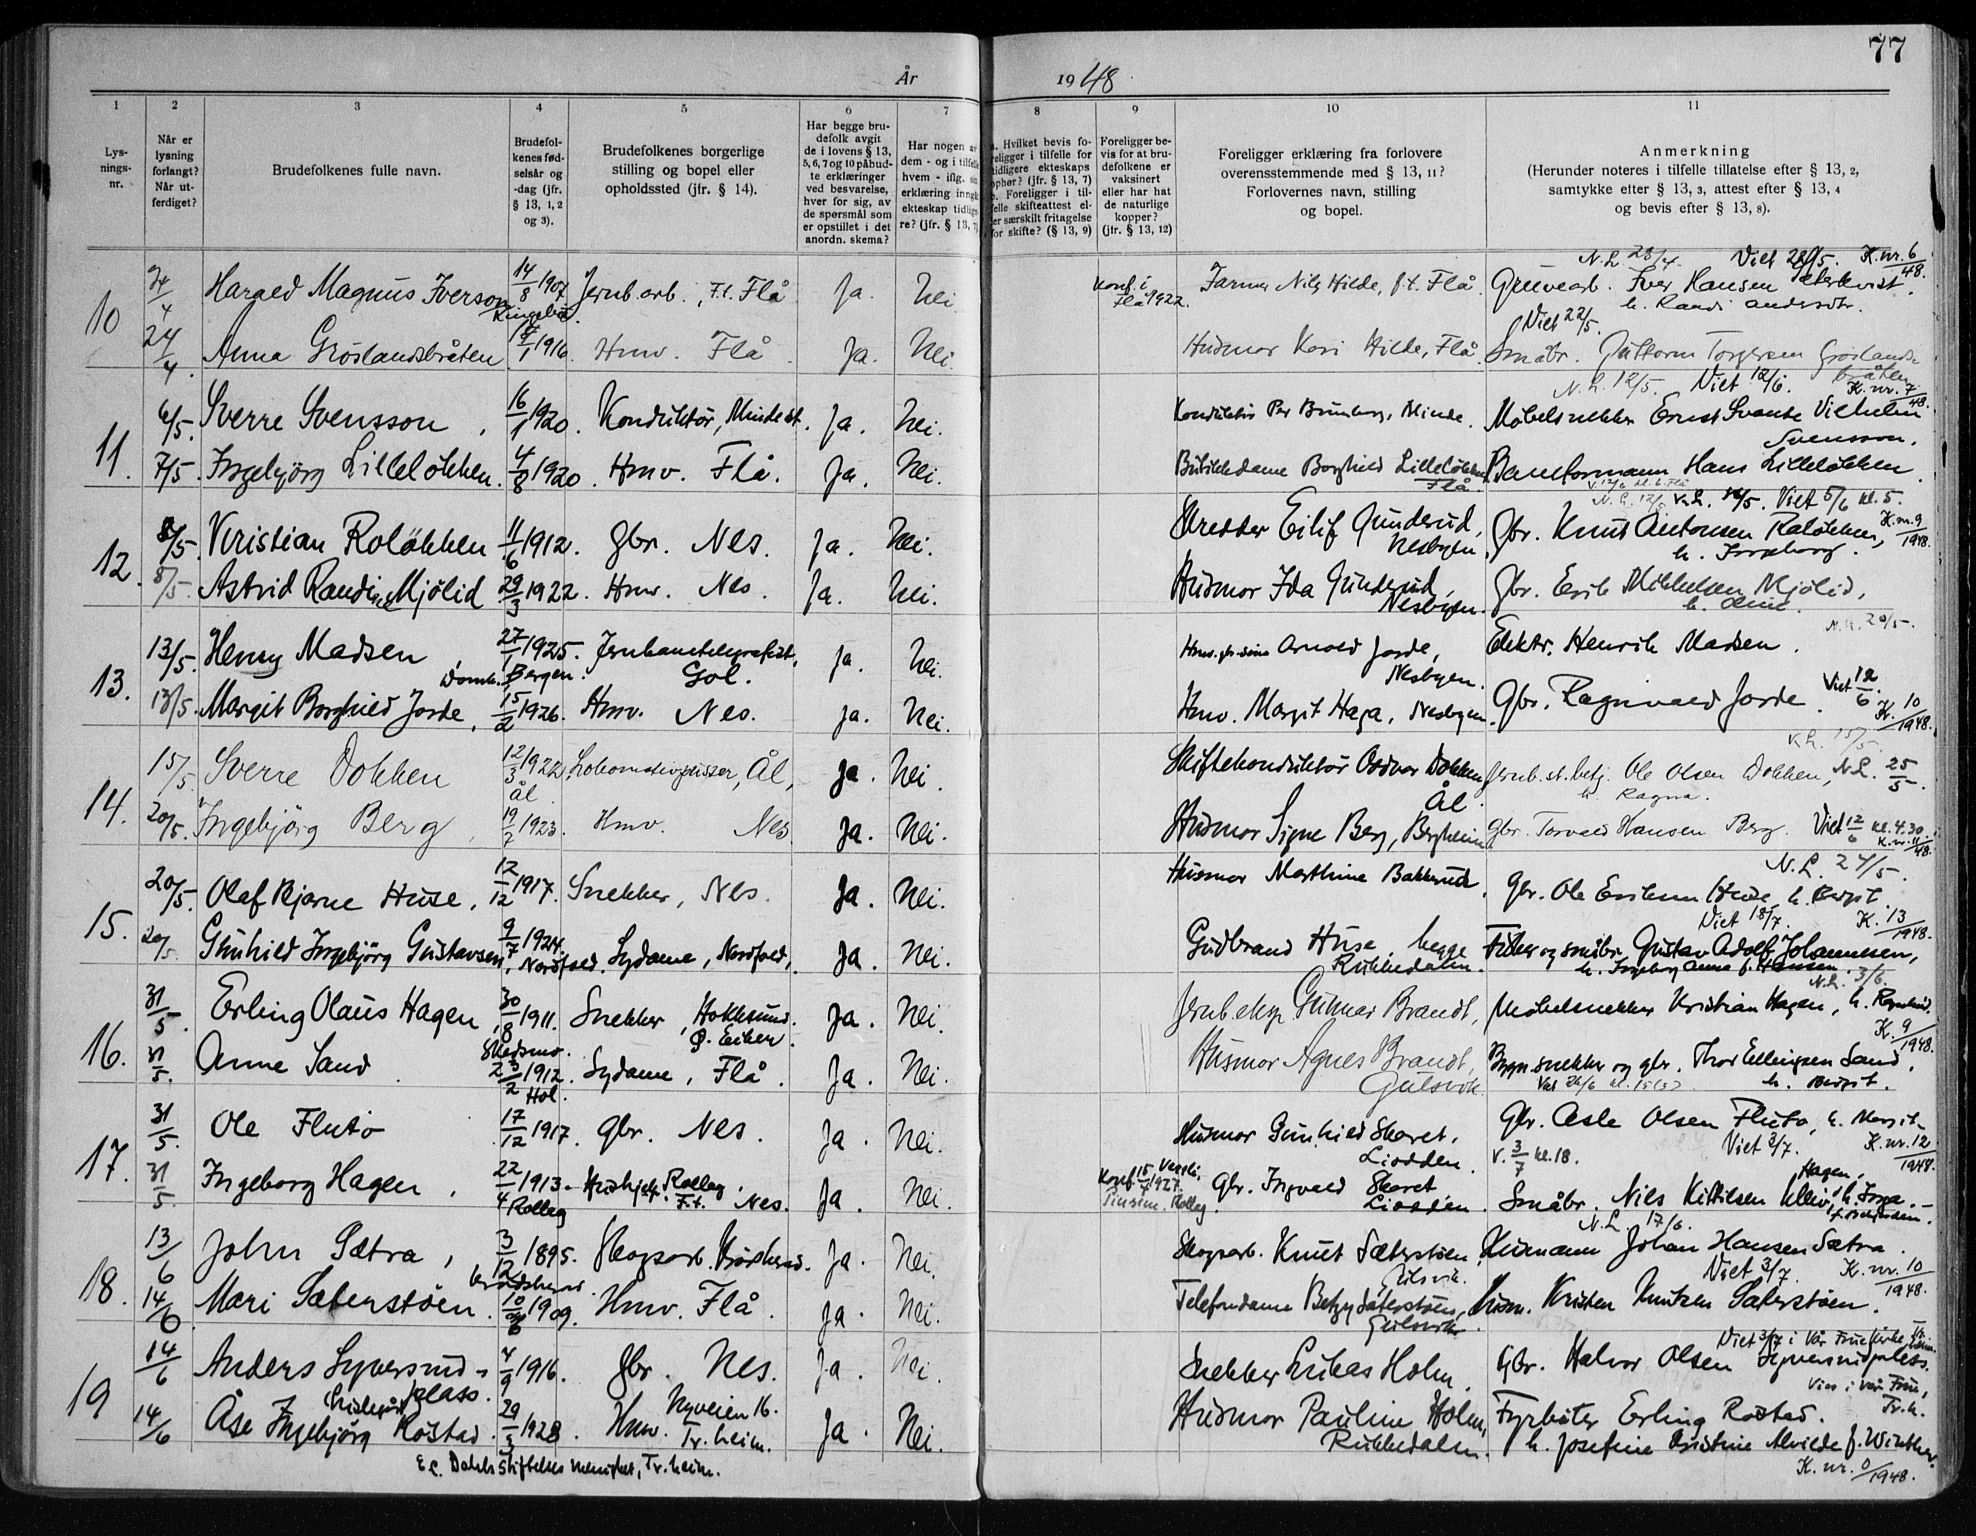 77
År 1948
1 2 3 4 5 6 7 8 9 10 11
Lysningsnr.
Når er lysning forlangt? Når utferdiget?
Brudefolkenes fulle navn.
Brudefolkenes fødselsår og -dag (jfr. § 13, 1, 2 og 3).
Brudefolkenes borgerlige stilling og bopel eller opholdssted (jfr. § 14).
Har begge brudefolk avgit de i lovens § 13, 5, 6, 7 og 10 påbudte erklæringer ved besvarelse, hver for sig, av de spørsmål som er opstillet i det anordn. skema?
Foreligger bevis for at brudefolkene er vaksinert eller har hat de naturlige kopper? (jfr. § 13, 12)
Foreligger erklæring fra forlovere overensstemmende med § 13, 11? Forlovernes navn, stilling og bopel.
Anmerkning
(Herunder noteres i tilfelle tillatelse efter § 13, 2, samtykke efter § 13, 3, attest efter § 13, 4 og bevis efter § 13, 8).
N.L. 28/4. K.nr. 6/48.
10 24/4 Harald Magnus Iverson 14/8 1907 Jernb.arb., F.t. Flå Ja. Nei Konf. i Flå 1922. Farmer Nils Hilde, f.t. Flå. Gruvearb. Iver Hansen
Viet 22/5.
24/4 Anna Gröslandsbråten 1916. Hmv. Flå Ja. Nei. Husmor Kari Hilde, Flå Småbr. Guttorm Torgersen Gröslandsbråten
N.L. 12/5. Viet 12/6. K.nr. 7/48.
11. 6/5. Sverre Svensson 16/1 1920. Konduktör, Minde st. Ja. Nei. Konduktör Per Brimberg, Minde. Møbelsnekker Ernst Svante Vilhelm Svensson.
7/5. Ingebjörg Lillelökken. 4/8 1920. Hmv. Flå. Ja. Nei. Butikkdame Borghild Lillelökken, Flå. Baneformann Hans Lillelökken
Viet 5/6 kl. 5.
12. 8/5. Kristian Rolökken 11/6 1912. Gbr. Nes. Ja. Nei. Skredder Eilif Gunderud, Nesbyen. Gbr. Knut Antonsen Rolökken, h. Ingeborg. K.nr. 9/1948.
8/5. Astrid Randine Mjölid 29/3 1922. Hmv. Nes. Ja. Nei. Husmor Ida Gunderud, Nesbyen. Gbr. Erik Mikkelsen Mjölid,
N.L. 20/5.
13. 13/5. Henry Madsen 27/1 1925. Bergen. Jernbanetelegrafist, Gol. Ja. Nei. Arnold Jorde, Nesbyen. Elektr. Henrik Madsen.
13/5. Margit Borghild Jorde, 15/2 1926. Hmv. Nes. Ja. Nei. Hmv. Margit Haga, Nesbyen. Gbr. Ragnvald Jorde. Viet 12/6. K. 10/1948.
K.L. 15/5.
14. 15/5. Sverre Dokken 12/3 1922 Ål. Lokomotivpusser, Ål, Ja. Nei. Skiftekonduktör Oddvar Dokken Ål. Jernb.st.betj. Ole Olsen Dokken, h. Ragna. N.L. 25/5.
20/5. Ingebjörg Berg, 19/7 1923. Hmv. Nes. Ja. Nei. Husmor Signe Berg, Bergheim Gbr. Torvald Hansen Berg. Viet 12/6 kl. 4.30. K.nr. 11/48.
N.L. 24/5.
15. 20/5. Olaf Bjarne Huse, 12/12 1917. Snekker, Nes. Ja. Nei. Husmor Marthine Bakkerud, Gbr. Ole Eriksen Huse, h. Bergit.
Viet 18/7. K. 13/1948.
20/5. Gunhild Ingebjörg Gustavsen, 9/7 1924. Nordfold. Sydame, Nordfold, Ja. Nei. Gudbrand Huse, begge Rukkedalen. Fisker og småbr. Gustav Adolf Johannesen, h. Ingeborg Anna f. Hansen.
N.L. 3/6.
16. 31/5. Erling Olaus Hagen, 30/8 1911. Skedsmo. Snekker, Hokksund. Ø. Eiker. Ja. Nei. Jernb.eksp. Gunnar Brandt, Møbelsnekker Kristian Hagen, h. Ragnhild. K. 9/1948.
31/5. Anne Sand 1912. Hol. Sydame, Flå. Ja. Nei. Husmor Agnes Brandt, Gulsvik. Bygn.snekker og gbr. Thor Ellingsen Sand, h. Bergit.
17. 31/5. Ole Flutö 17/12 1917. Gbr. Nes. Ja. Nei. Husmor Gunhild Skaret, Liodden. Gbr. Asle Olsen Flutö, h. Margit
V. 3/7 kl. 18. Viet 3/7. K.nr. 12/1948.
31/5. Ingeborg Hagen, 22/4 1913. Rollag Hushjelp. Rollag. F.t. Nes. Ja. Nei. Konf. 1927. Rollag Gbr. Ingvald Skaret Liodden. Småbr. Nils Kittilsen
N.L. 17/6.
18. 13/6 John Sætra, 3/12 1895. Skogsarb. Ja. Nei. Skogsarb. Knut Sæterstöen, Gulsvik. Husmann Johan Hansen Sætra.
Viet 3/7. K.nr. 10/1948.
14/6 Mari Sæterstöen. 1909. Hmv. Flå. Ja. Nei. Telefondame Betzy Sæterstöen, Gulsvik. Husm. Kristen Knutsen Sæterstöen.
Viet 3/7 i Vår Frue Kirke,
19 14/6 Anders Syversrudplass. 4/9 1916. Gbr. Nes. Ja. Nei. Snekker Lukas Holm. Gbr. Halvor Olsen Syversrudplass.
14/6 Åse Ingebjörg Röstad. 1928. Hmv. Nyveien 16. Tr.heim. Ja. Nei. Husmor Pauline Holm, Rukkedalen. Fyrböter Erling Röstad. h. Josefine Kristine Alvilde f. Winther.
E.C. Dahls Stiftelses menighet, Tr.heim.
K.nr. 0/1948.